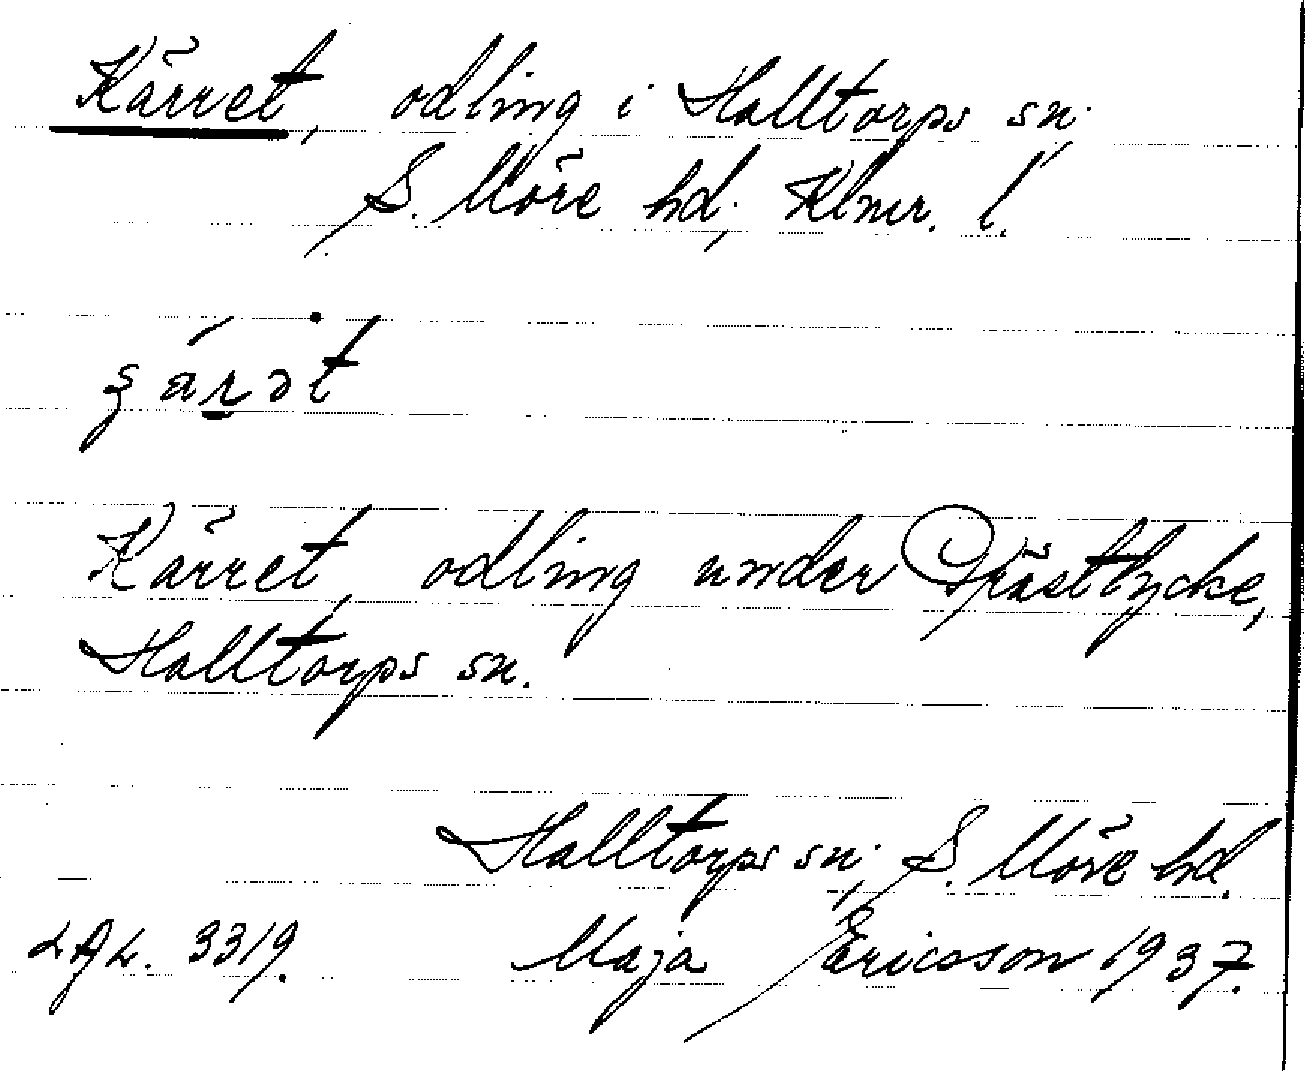 Kärret, odling i Halltorps sn.,
S. Möre hd., Klmr. l.
Kärret, odling under Prästlycke,
Halltorps sn.
Halltorps sn., S. Möre hd.
Maja Ericsson 1937.
3319.